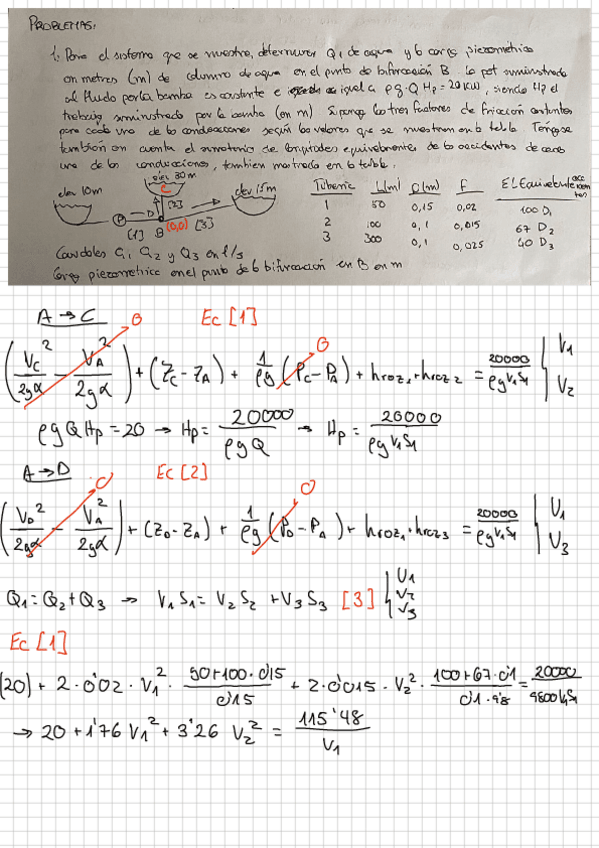 PROBLEMAS:
1. Para el sistema que se muestra, determinar Q1 de agua y la carga piezometrica
en metros (m) de columna de agua en el punto de bifurcación B. La pot suministrada
al fluido por la bomba es constante e igual a ρg·Q Hp = 20 kW, siendo Hp el
trabajo suministrado por la bomba (en m) Suponga los tres factores de fricción constantes
para cada una de las conducciones según los valores que se muestran en la tabla. Tengase
tambien en cuenta el sumatorio de longitudes equivalentes de los accidentes de cada
una de las conducciones, tambien mostrado en la tabla.
elev 10m elev 30m elev 15m
C
[2]
P D
[1] B (0,0) [3]
Tuberia L(m) D(m) F Σ L Equivalente accidentes
1 50 0,15 0,02 100 D1
2 100 0,1 0,015 67 D2
3 300 0,1 0,025 40 D3
Caudales Q1 Q2 y Q3 en l/s
Carga piezometrica en el punto de la bifurcación en B en m
A → C Ec [1]
(Vc²/2gα - VA²/2gα) 0 + (Zc - ZA) + 1/ρg (Pc - PA) 0 + hroz1 + hroz2 = 20000/ρg V1 S1 { V1 V2
ρg Q Hp = 20 → Hp = 20000/ρg Q → Hp = 20000/ρg V1 S1
A → D Ec [2]
(VD²/2gα - VA²/2gα) 0 + (ZD - ZA) + 1/ρg (PD - PA) 0 + hroz1 + hroz3 = 20000/ρg V1 S1 { V1 V3
Q1 = Q2 + Q3 → V1 S1 = V2 S2 + V3 S3 [3] { V1 V2 V3
Ec [1]
(20) + 2·0'02·V1²· 50+100·0'15/0'15 + 2·0'015·V2²· 100+67·0'1/0'1·9'8 = 20000/9800 V1 S1
→ 20 + 1'76 V1² + 3'26 V2² = 115'48/V1